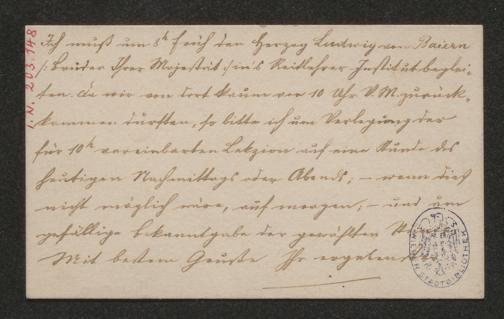 I. N. 203.148
Ich muß um 8h früh den Herzog Ludwig von Baiern
/: Bruder Ihrer Majestät :/ ins Reitlehrer Institut beglei-
ten. Da wir von dort kaum vor 10 Uhr V.M. zurück-
kommen dürften, so bitte ich um Verlegung der
für 10h vereinbarten Lekzion auf eine Stunde des
heutigen Nachmittags oder Abends; – wenn dieß
nicht möglich wäre, auf morgen; – und um
gefällige Bekanntgabe der gewählten
Mit bestem Gruße Ihr ergebenster
STADTBIBLIOTHEK